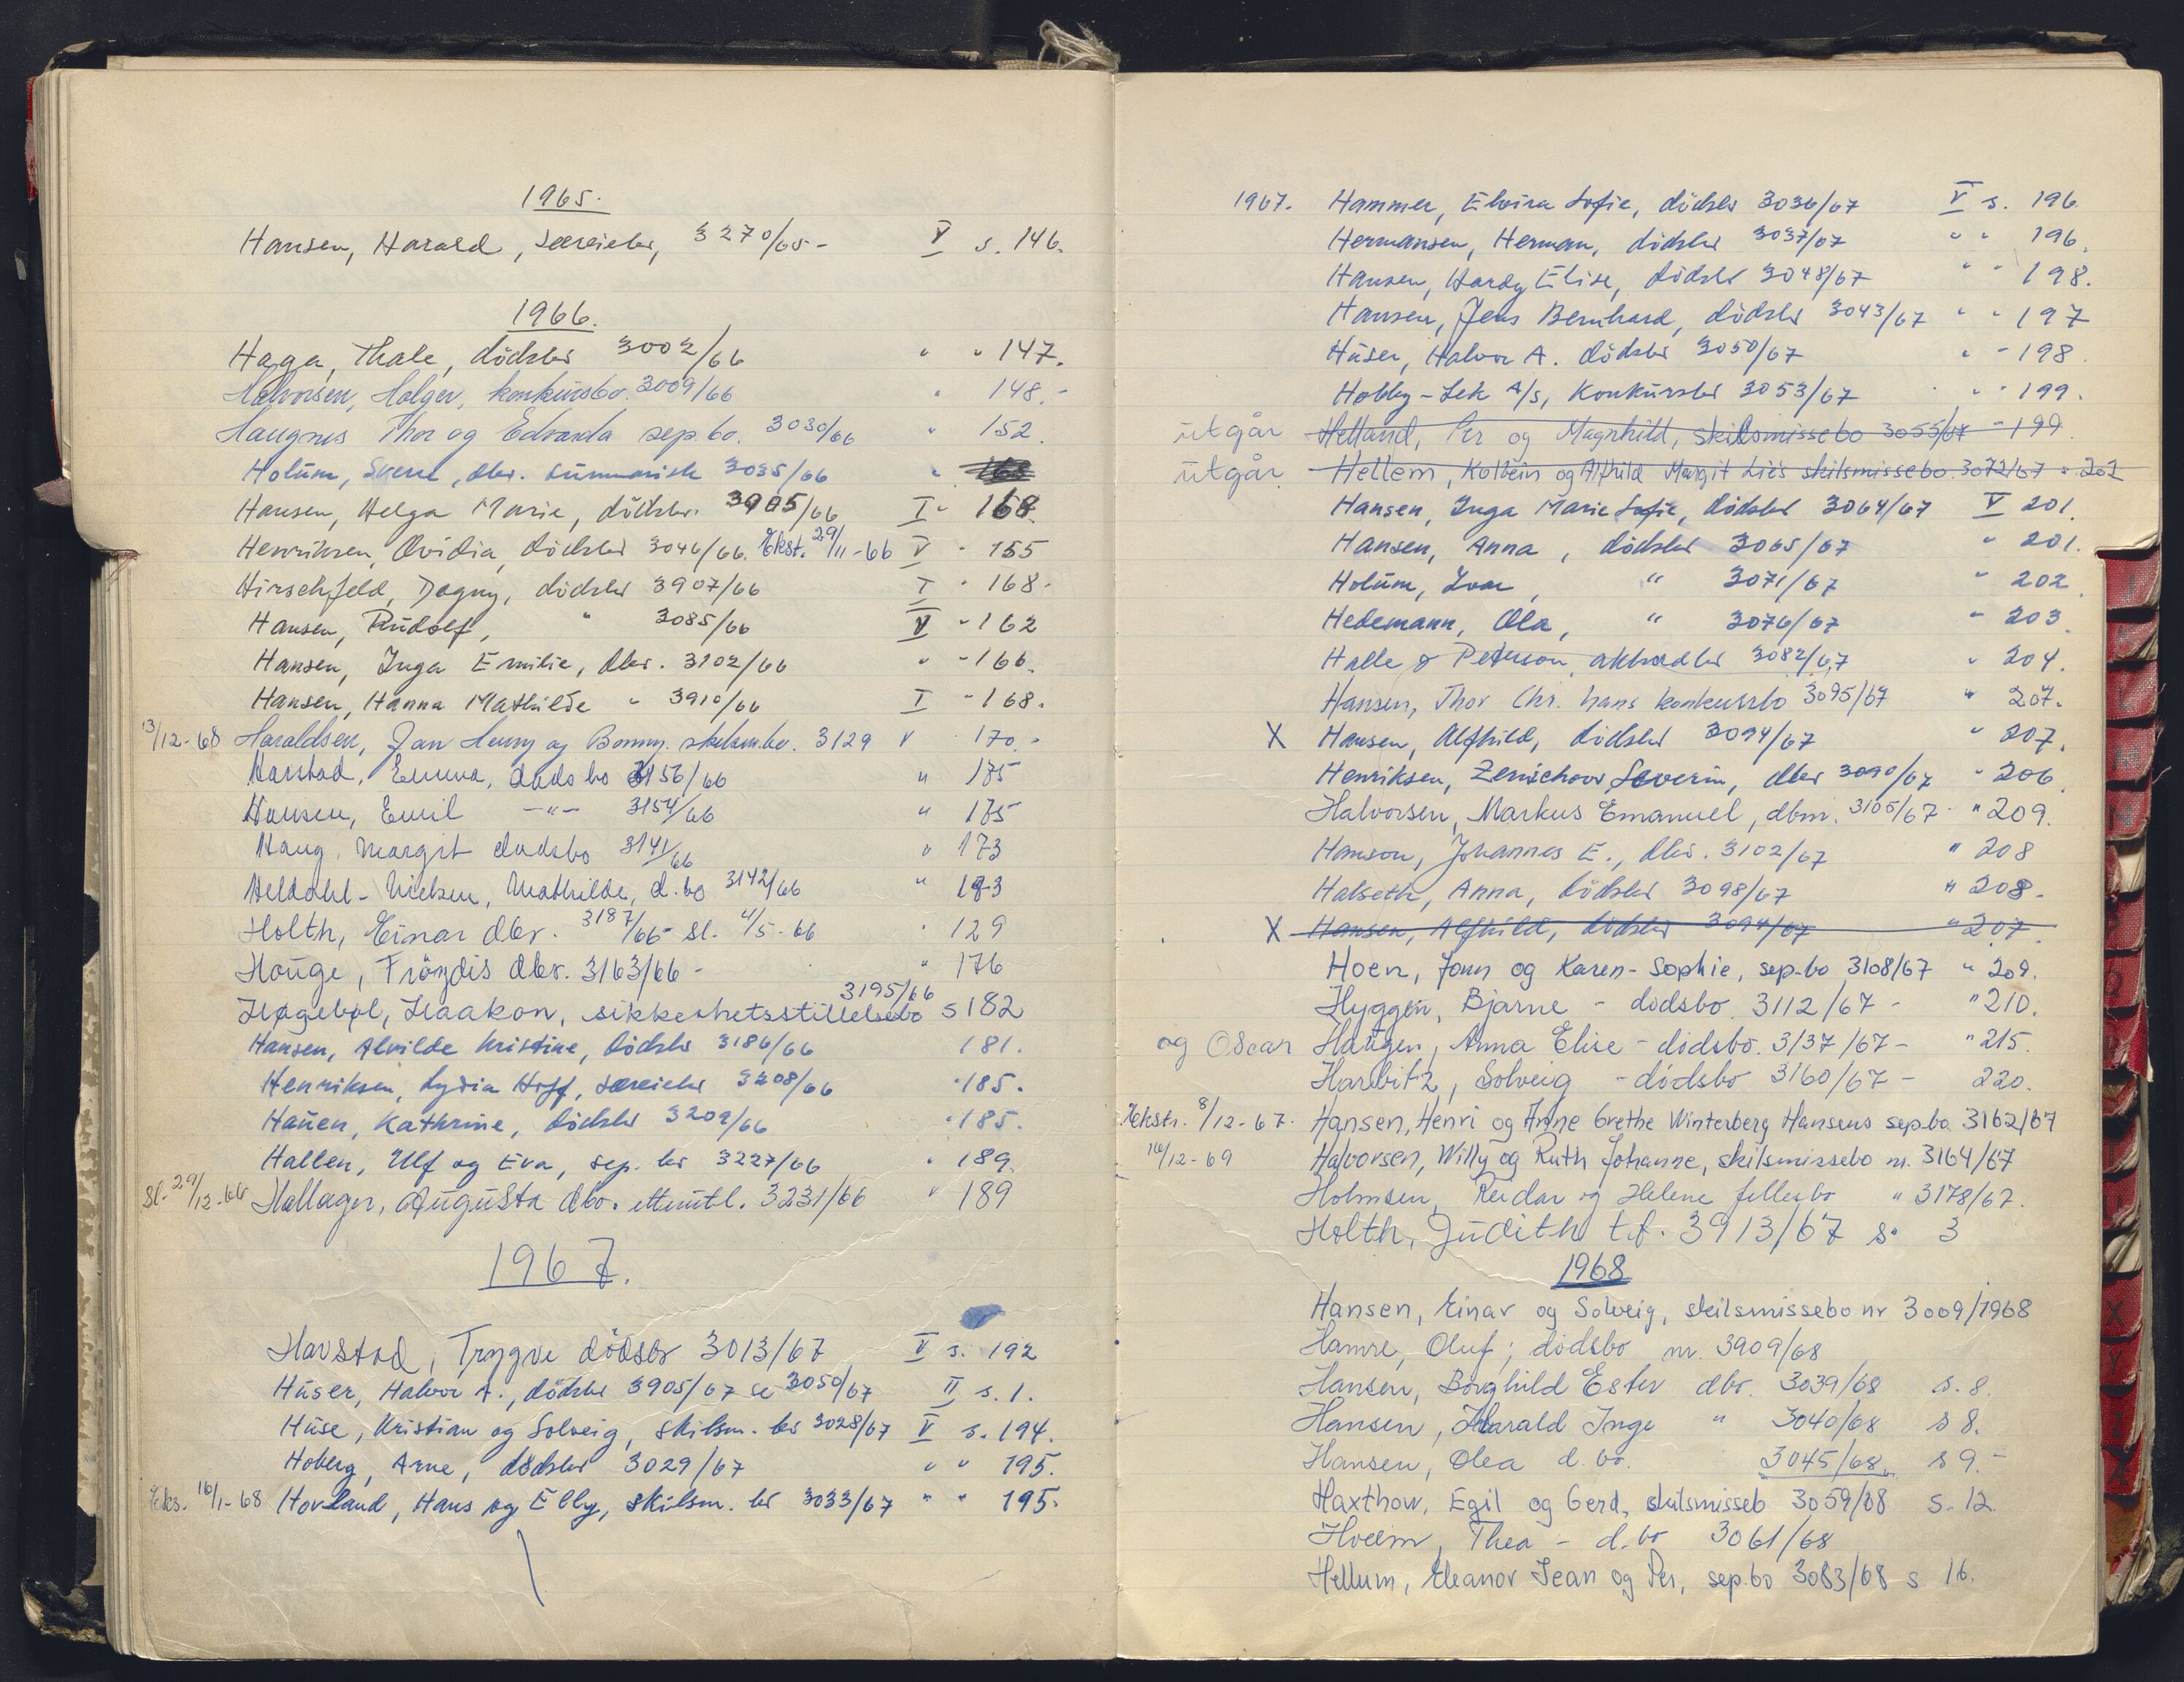 1965.
Hansen, Harald, særeiebo, 3270/65 - V s. 146.
1966.
Haga, Thale, dödsbo 3002/66 " " 147.
Halvorsen, Holger, konkursbo. 3009/66 " 148.-
Haugnes Thor og Edvarda sep.bo. 3030/66 " 152.
Holum, Sverre, dbo. summarisk 3035/66 "
Hansen, Helga Marie, dödsbo. 3905/66 I " 168.
Henriksen, Ovidia, dödsbo 3046/66. Ekst. 29/11-66 V " 155
Hirschfeld, Dagny, dödsbo 3907/66 I " 168.
Hansen, Rudolf, " 3085/66 V " 162
Hansen, Inga Emilie, dbo. 3102/66 " " 166.
Hansen, Hanna Mathilde " 3910/66 I " 168.
13/12-68 Haraldsen, Jan Henry og Bonny. skilsm.bo. 3129 V 170.-
Harstad, Emma, dødsbo 3156/66 " 175
Hansen, Emil -"- 3154/66 " 175
Haug, Margit dødsbo 3141/66 " 173
Heldahl-Nielsen, Mathilde, d.bo 3142/66 " 173
Holth, Einar dbo. 3187/65 sl. 4/5-66 " 129
Houge, Fröydis dbo. 3163/66 - " 176
Høgebøl, Haakon, sikkerhetsstillelsesbo 3195/66 s 182
Hansen, Alvilde Kristine, dödsbo 3186/66 181.
Henriksen, Lydia Hoff, særeiebo 3208/66 " 185.
Hauen, Kathrine, dödsbo 3209/66 " 185.
Hallen, Ulf og Eva, sep. bo 3227/66 " 189.
Sl. 29/12-66 Hallager, Augusta dbo. etterutl. 3231/66 " 189
1967.
Havstad, Trygve dödsbo 3013/67 V s. 192
Huser, Halvor A., dödsbo 3905/67 se 3050/67 II s. 1.
Huse, Kristian og Solveig, skilsm. bo 3028/67 V s. 194.
Hoberg, Arne, dödsbo 3029/67 " " 195.
Eks. 16/1-68 Hovland, Hans og Elly, skilsm. bo 3033/67 " " 195.
1967. Hammer, Elvira Sofie, dödsbo 3036/67 V s. 196
Hermansen, Herman, dödsbo 3037/67 " " 196.
Hansen, Hardy Elise, dödsbo 3048/67 " " 198.
Hansen, Jens Bernhard, dödsbo 3043/67 " " 197
Huser, Halvor A. dödsbo 3050/67 " " 198.
Hobby-Lek A/S, Konkursbo 3053/67 " " 199.
utgår Helland, Per og Magnhild, skilsmissebo 3055/67 " 199.
utgår Hellem, Kolbein og Alfhild Margit Lie's skilsmissebo. 3072/67 s. 202
Hansen, Inga Marie Sofie, dödsbo 3064/67 V 201.
Hansen, Anna, dödsbo 3065/67 " 201.
Holum, Ivar, " 3071/67 " 202.
Hedemann, Ola, " 3076/67 " 203.
Halle & Peterson, akkordbo 3082/67 " 204.
Hansen, Thor Chr. hans konkursbo 3095/67 " 207.
X Hansen, Alfhild, dödsbo 3094/67 " 207.
Henriksen, Severin, dbo 3090/67 " 206
Halvorsen, Markus Emanuel, dbm. 3105/67 " 209.
Hanson, Johannes E., dbo. 3102/67 " 208
Halseth, Anna, dödsbo 3098/67 " 208.
X Hansen, Alfhild, dödsbo 3094/67 " 207.
Hoen, Jonn og Karen-Sophie, sep.bo 3108/67 " 209.
Hyggen, Bjarne - dødsbo. 3112/67 - " 210.
og Oscar Haugen, Anna Elise - dödsbo. 3137/67 - " 215.
Harbitz, Solveig - dödsbo 3160/67 - 220.
Ekstr. 8/12-67. Hansen, Henri og Anne Grethe Winterberg Hansens sepbo 3162/67
16/12-69 Halvorsen, Willy og Ruth Johanne, skilsmissebo nr. 3164/67
Holmsen, Reidar og Helene fellesbo " 3178/67.
Holth, Judith t.f. 3913/67 s. 3
1968
Hansen, Einar og Solveig, skilsmissebo nr 3009/1968
Hamre, Oluf; dödsbo nr. 3909/68
Hansen, Borghild Ester dbo. 3039/68 s. 8.
Hansen, Harald Inge " 3040/68 s 8.
Hansen, Olea d.bo. 3045/68. s 9.-
Haxthow, Egil og Gerd, skilsmisseb 3059/68 s. 12.
Hveem, Thea - d.bo 3061/68
Hellum, Eleanor Jean og Per, sep.bo 3083/68 s 16.